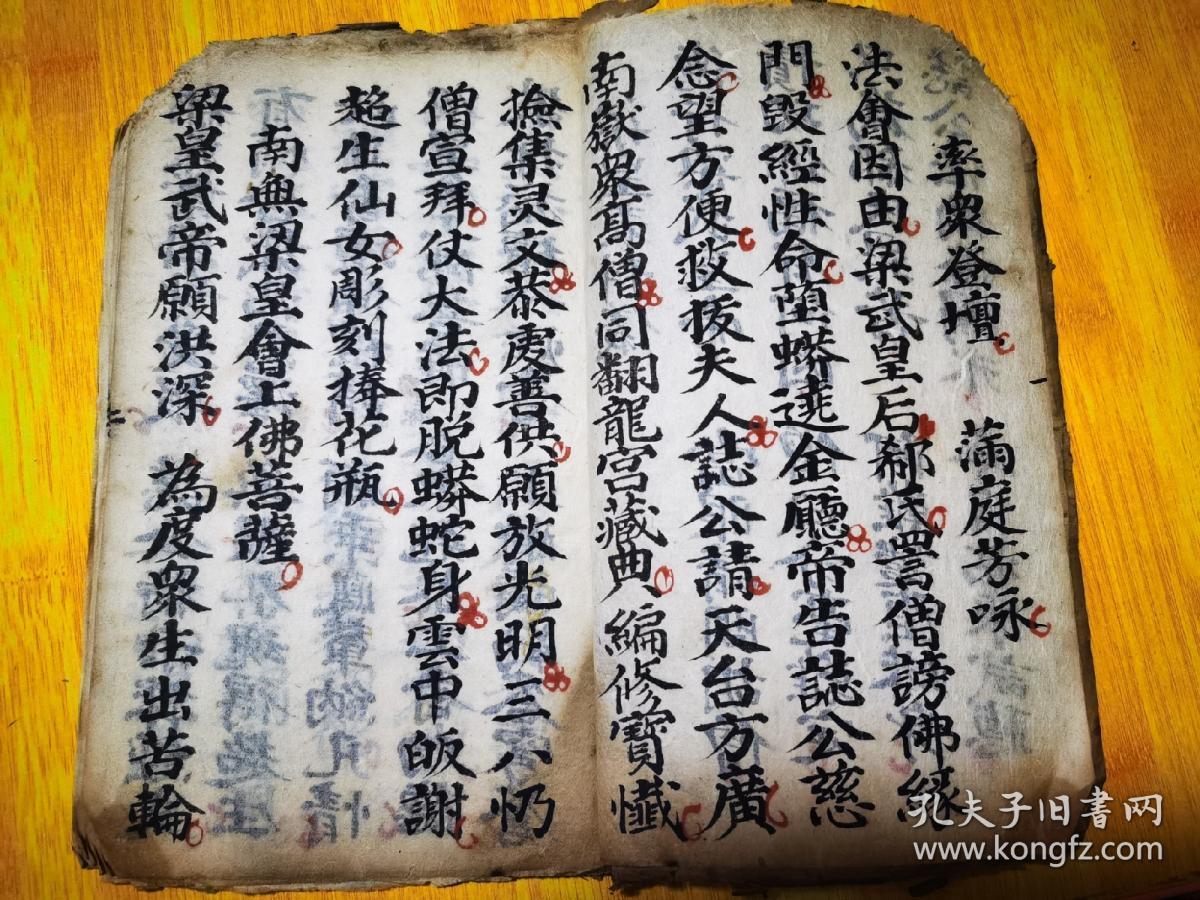 率衆登壇 蒲庭芳咏
法會因由梁武皇后郗氏詈僧謗佛縁
門毀經性命堕蟒遶金廳帝告誌公慈
念望方便救拔夫人誌公請天台方廣
南嶽衆高僧同翻龍宮藏典編修寶懺
撿集灵文恭虔善供願放光明三八忉
僧宣拜仗大法即脱蟒蛇身雲中皈謝
超生仙女彫刻捧花瓶
南無梁皇會上佛菩薩
梁皇武帝願洪深 為度衆生出苦輪
孔夫子旧書网
www.kongfz.com